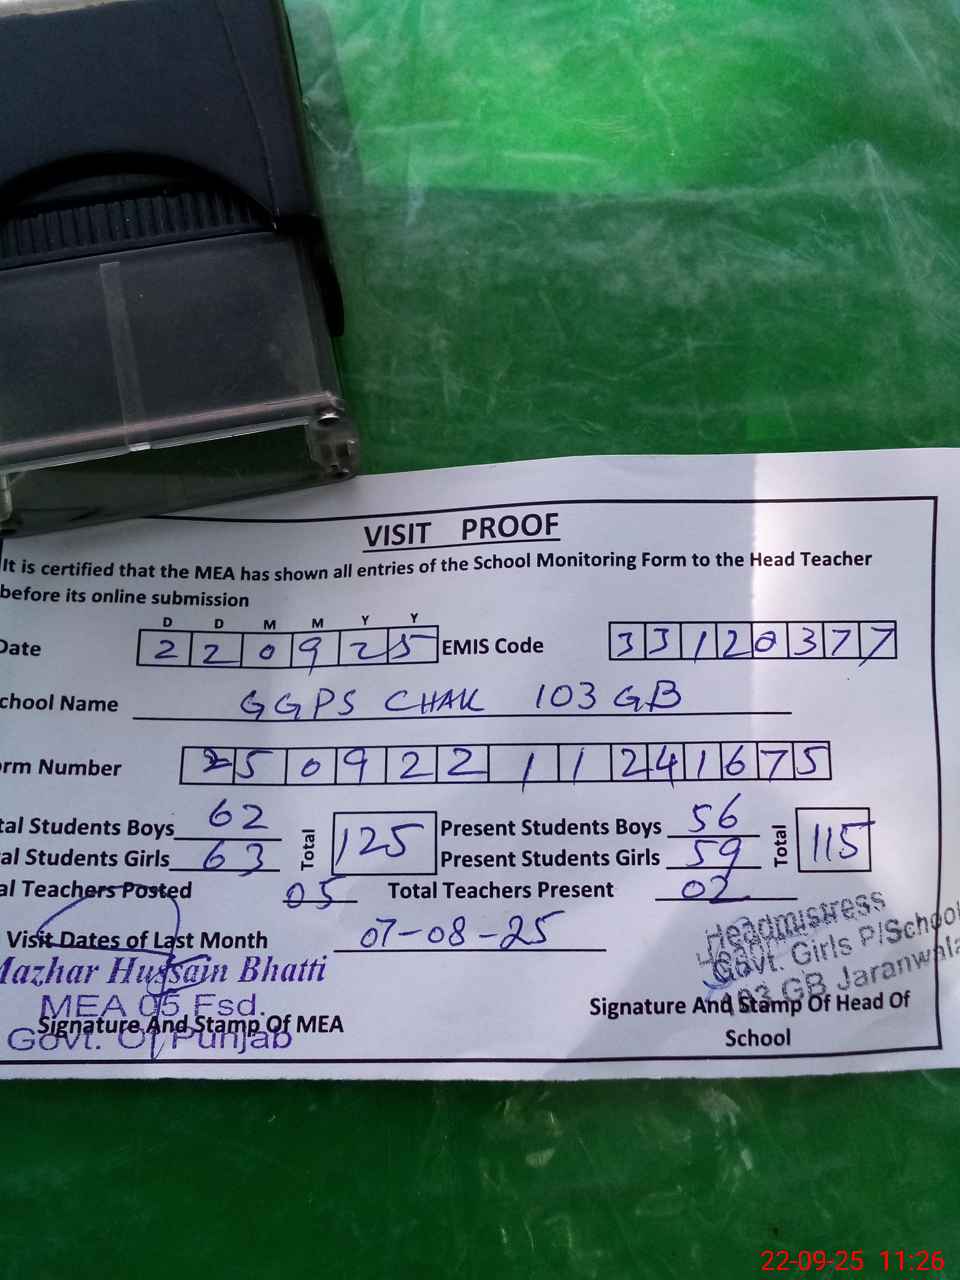 VISIT PROOF
It is certified that the MEA has shown all entries of the School Monitoring Form to the Head Teacher
before its online submission
D D M M Y Y
Date 2 2 0 9 2 5 EMIS Code 3 3 1 2 0 3 7 7
chool Name GGPS CHAK 103 GB
rm Number 2 5 0 9 2 2 1 1 2 4 1 6 7 5
tal Students Boys 62 Total 125 Present Students Boys 56 Total 115
al Students Girls 63 Present Students Girls 59
al Teachers Posted 05 Total Teachers Present 02
Visit Dates of Last Month 07-08-25
Headmistress
Govt. Girls P/School
103 GB Jaranwala
Mazhar Hussain Bhatti
MEA 05 Fsd.
Govt. Of Punjab
Signature And Stamp Of MEA
Signature And Stamp Of Head Of
School
22-09-25 11:26